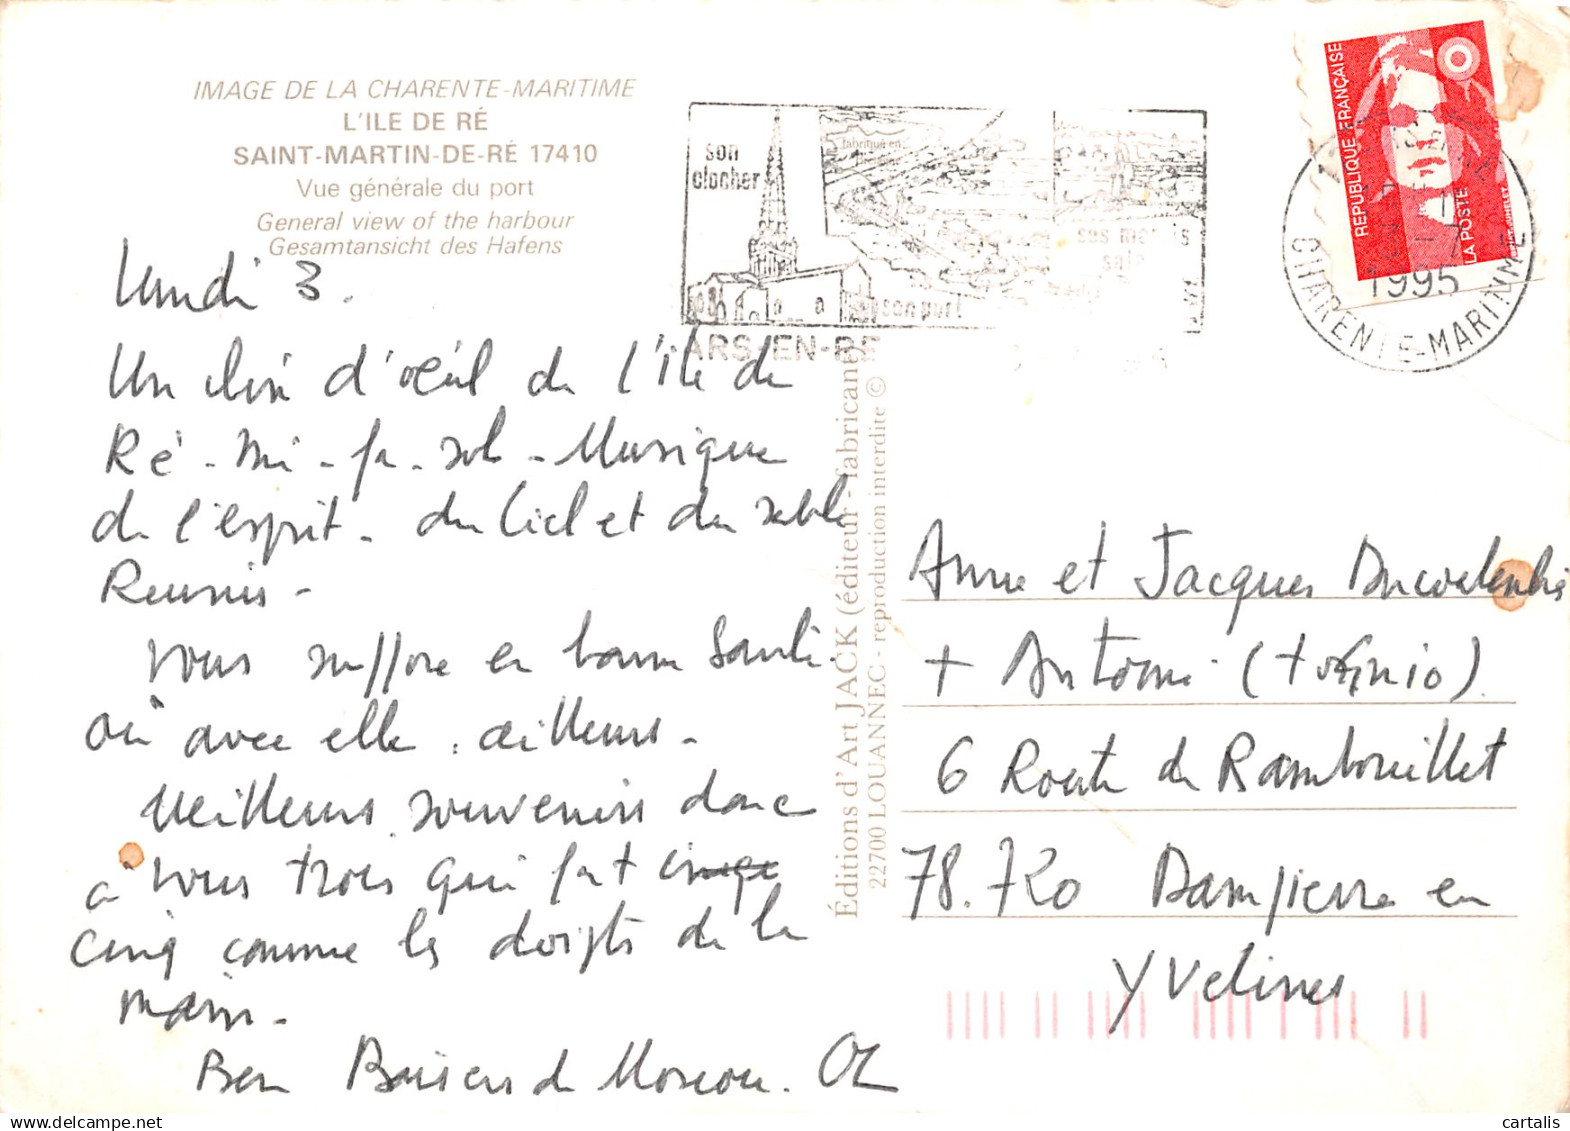 IMAGE DE LA CHARENTE-MARITIME
L'ILE DE RÉ
SAINT-MARTIN-DE-RÉ 17410
Vue générale du port
General view of the harbour
Gesamtansicht des Hafens
Lundi 3.
Un clin d'œil de l'île de
Ré - mi - fa - sol - Musique
de l'esprit - du Ciel et du sable
Reunis -
Vous suffire en bonne Santé.
où avec elle, ailleurs -
Meilleurs souvenirs donc
à vous trois qui fait
cinq comme les doigts de la
main -
Ben Baisers de Moscou. OL
son
clocher
fabriqué en
son port
ses marais
ARS-EN-RE
RÉPUBLIQUE FRANÇAISE
LA POSTE
1995
CHARENTE-MARITIME
Éditions d'Art JACK (éditeur - fabricant)
22700 LOUANNEC - reproduction interdite ©
Anne et Jacques
+ Antoine (+
6 Route de Rambouillet
78.720 Dampierre en
Yvelines
cartalis